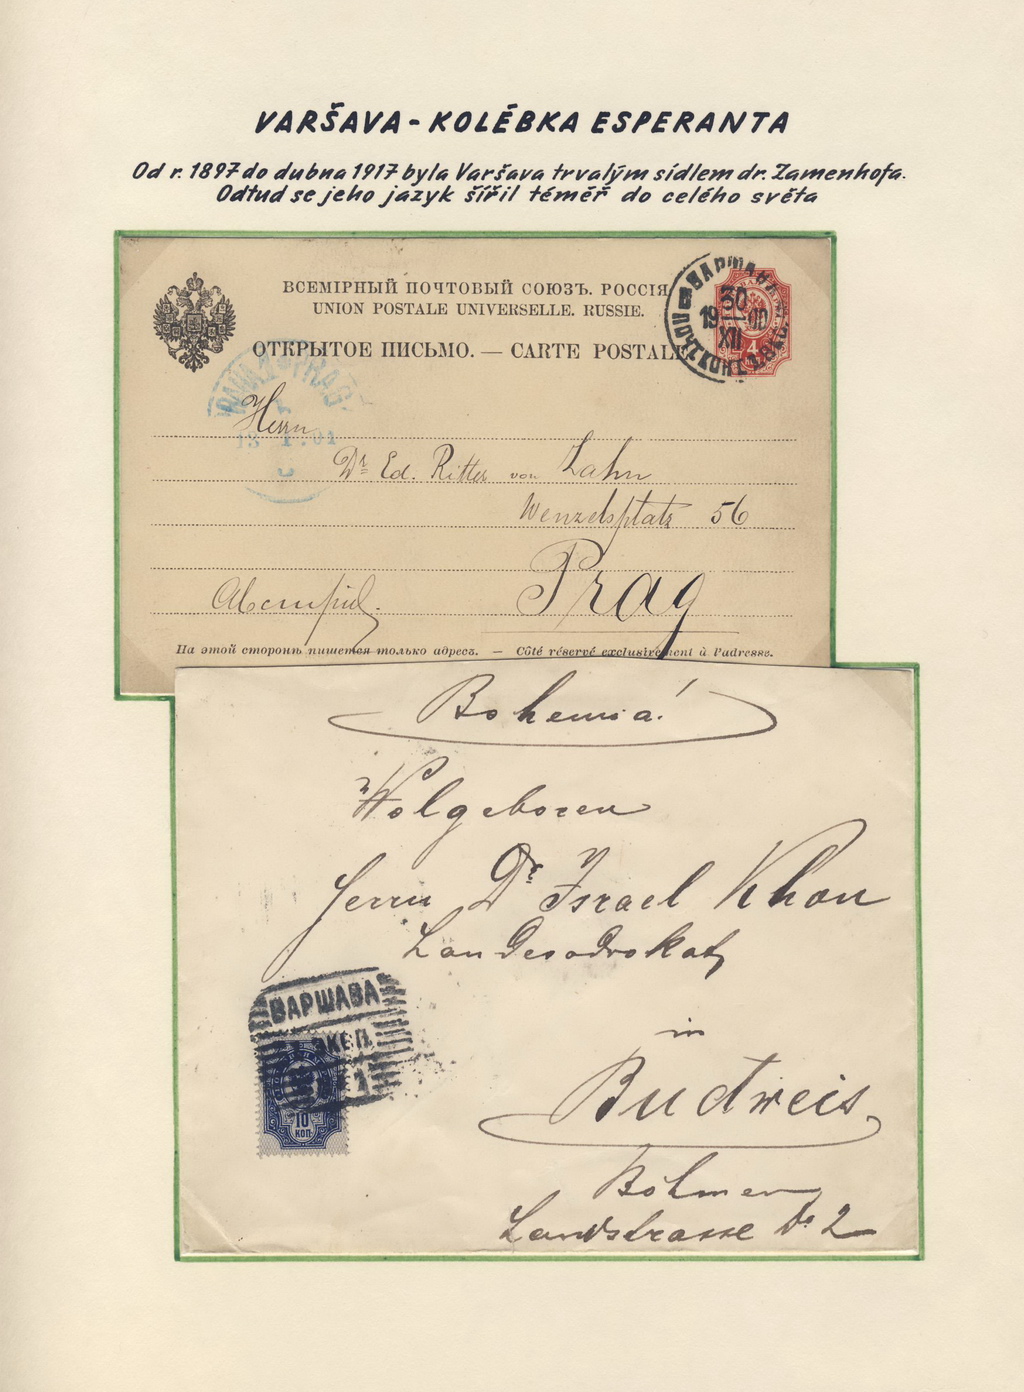 VARŠAVA - KOLÉBKA ESPERANTA
Od r. 1897 do dubna 1917 byla Varšava trvalým sídlem dr. Zamenhofa.
Odtud se jeho jazyk šířil téměř do celého světa
ВСЕМІРНЫЙ ПОЧТОВЫЙ СОЮЗЪ. РОССІЯ
UNION POSTALE UNIVERSELLE. RUSSIE.
ОТКРЫТОЕ ПИСЬМО. — CARTE POSTALE
ВАРШАВА
30
19 00
XII
4
PRAG
13 1.01
Herrn
Dr Ed. Ritter von Zahn
Wenzelsplatz 56
Prag
Австрія.
На этой сторонѣ пишется только адресъ. — Côté réservé exclusivement à l'adresse.
Bohemia!
Wolgeboren
Herrn Dr Israel Khon
Landesadvokat
in
Budweis
Böhmen
Landstrasse No 2
ВАРШАВА
1
10
КОП